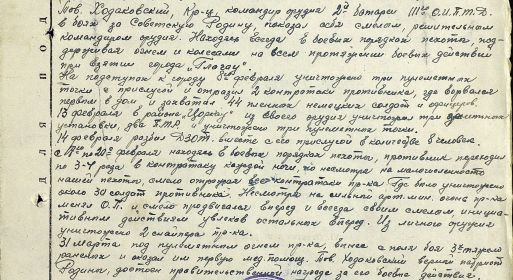 Тов. Ходаковский, Кр-ц, командир орудия 2ой батареи III го О.И.П.Т.Д.
в боях за Советскую Родину, показал себя смелым, решительным
командиром орудия. Находясь всегда в боевых порядках пехоты, под-
держивая огнем и колесами на всем протяжении боевых действий
при взятии города "Глогау".
На подступах к городу 8го февраля уничтожено три пулеметных
точки с прислугой и отразил 2 контратаки противника, где ворвался
первым в дом, и захватил 44 пленных немецких солдат и офицеров.
13 февраля в районе из своего орудия уничтожил три
установки, два П.Т.Р. и уничтожено три пулеметных точки.
14 февраля разбил ДЗОТ. вместе с его прислугой в количестве 8 человек
с 17го по 20е февраля находясь в боевых порядках пехоты, противник переходил
по 3-4 раза в контратаку каждую ночь, но несмотря на малочисленность
нашей пехоты, смело отражал все контратаки пр-ка. Где было уничтожено
около 30 солдат противника. Несмотря на сильный арт. мин. огонь пр-ка
менял О.П. и смело продвигался вперед и всегда своим смелым, инициа-
тивным действиям увлекал остальных вперед. Из личного оружия
уничтожено 2 снайпера пр-ка.
31 марта под пулеметным огнем пр-ка, вынес с поля боя 3х
раненых и оказал им первую мед. помощ. Тов. Ходаковский верный патриот
Родины, достоин правительственной награде за его боевые действия.
ДЛЯ ПОД